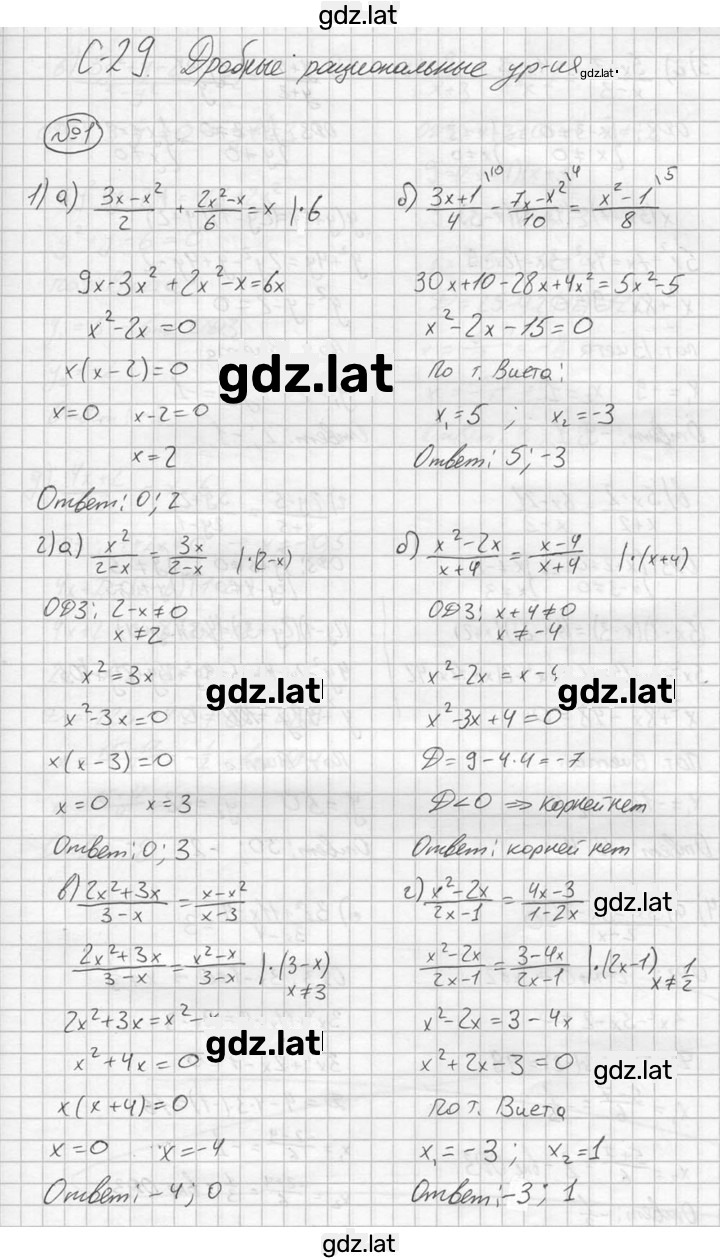 gdz.lat
С-29. Дробные рациональные ур-ия.
gdz.lat
№1
1) а) (3x-x²)/2 + (2x²-x)/6 = x |·6
9x-3x²+2x²-x=6x
x²-2x=0
x(x-2)=0
x=0 x-2=0
x=2
Ответ: 0; 2
б) (3x+1)/4 \10 - (7x-x²)/10 \4 = (x²-1)/8 \5
30x+10-28x+4x²=5x²-5
x²-2x-15=0
По т. Виета:
x₁=5 ; x₂=-3
Ответ: 5; -3
gdz.lat
2) а) x²/(2-x) = 3x/(2-x) |·(2-x)
ОДЗ: 2-x≠0
x≠2
x²=3x
x²-3x=0
x(x-3)=0
x=0 x=3
Ответ: 0; 3
gdz.lat
б) (x²-2x)/(x+4) = (x-4)/(x+4) |·(x+4)
ОДЗ: x+4≠0
x≠-4
x²-2x=x-
x²-3x+4=0
D=9-4·4=-7
D<0 ⇒ корней нет
Ответ: корней нет
gdz.lat
в) (2x²+3x)/(3-x) = (x-x²)/(x-3)
(2x²+3x)/(3-x) = (x²-x)/(3-x) |·(3-x)
x≠3
2x²+3x=x²-
x²+4x=0
x(x+4)=0
x=0 x=-4
Ответ: -4; 0
gdz.lat
г) (x²-2x)/(2x-1) = (4x-3)/(1-2x)
gdz.lat
(x²-2x)/(2x-1) = (3-4x)/(2x-1) |·(2x-1)
x≠1/2
x²-2x=3-4x
x²+2x-3=0
По т. Виета
x₁=-3; x₂=1
Ответ: -3; 1
gdz.lat
gdz.lat